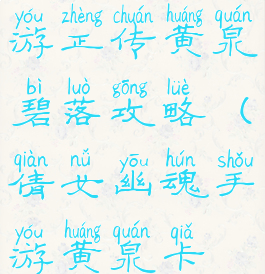 yóu zhèng chuán huáng quán
游正传黄泉
bì luò gōng lüè
碧落攻略（
qiàn nǚ yōu hún shǒu
倩女幽魂手
yóu huáng quán qiǎ
游黄泉卡